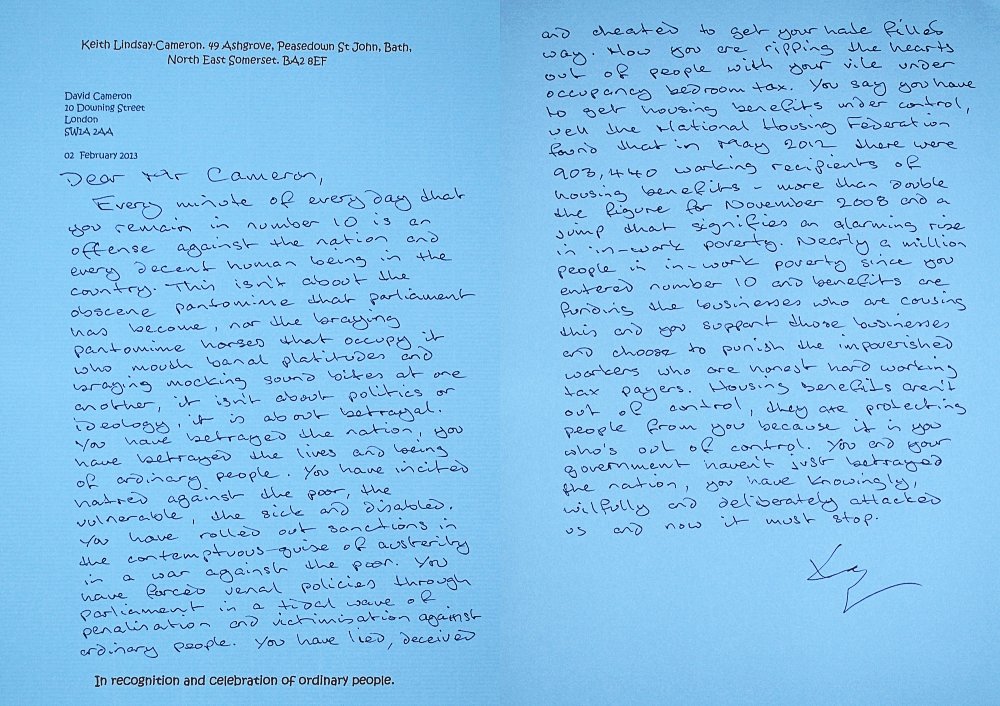 Keith Lindsay-Cameron. 49 Ashgrove, Peasedown St John, Bath,
North East Somerset. BA2 8EF
David Cameron
10 Downing Street
London
SW1A 2AA
02 February 2013
Dear Mr Cameron,
Every minute of every day that
you remain in number 10 is an
offense against the nation and
every decent human being in the
country. This isn't about the
obscene pantomime that parliament
has become, nor the braying
pantomime horses that occupy it
who mouth banal platitudes and
braying mocking sound bites at one
another, it isn't about politics or
ideology, it is about betrayal.
You have betrayed the nation, you
have betrayed the lives and being
of ordinary people. You have incited
hatred against the poor, the
vulnerable, the sick and disabled.
You have rolled out sanctions in
the contemptuous guise of austerity
in a war against the poor. You
have forced venal policies through
parliament in a tidal wave of
penalisation and victimisation against
ordinary people. You have lied, deceived
In recognition and celebration of ordinary people.
and cheated to get your hate filled
way. How you are ripping the hearts
out of people with your vile under
occupancy bedroom tax. You say you have
to get housing benefits under control,
well the National Housing Federation
found that in May 2012 there were
903,440 working recipients of
housing benefits - more than double
the figure for November 2008 and a
jump that signifies an alarming rise
in in-work poverty. Nearly a million
people in in-work poverty since you
entered number 10 and benefits are
funding the businesses who are causing
this and you support those businesses
and choose to punish the impoverished
workers who are honest hard working
tax payers. Housing benefits aren't
out of control, they are protecting
people from you because it is you
who's out of control. You and your
government haven't just betrayed
the nation, you have knowingly,
wilfully and deliberately attacked
us and now it must stop.